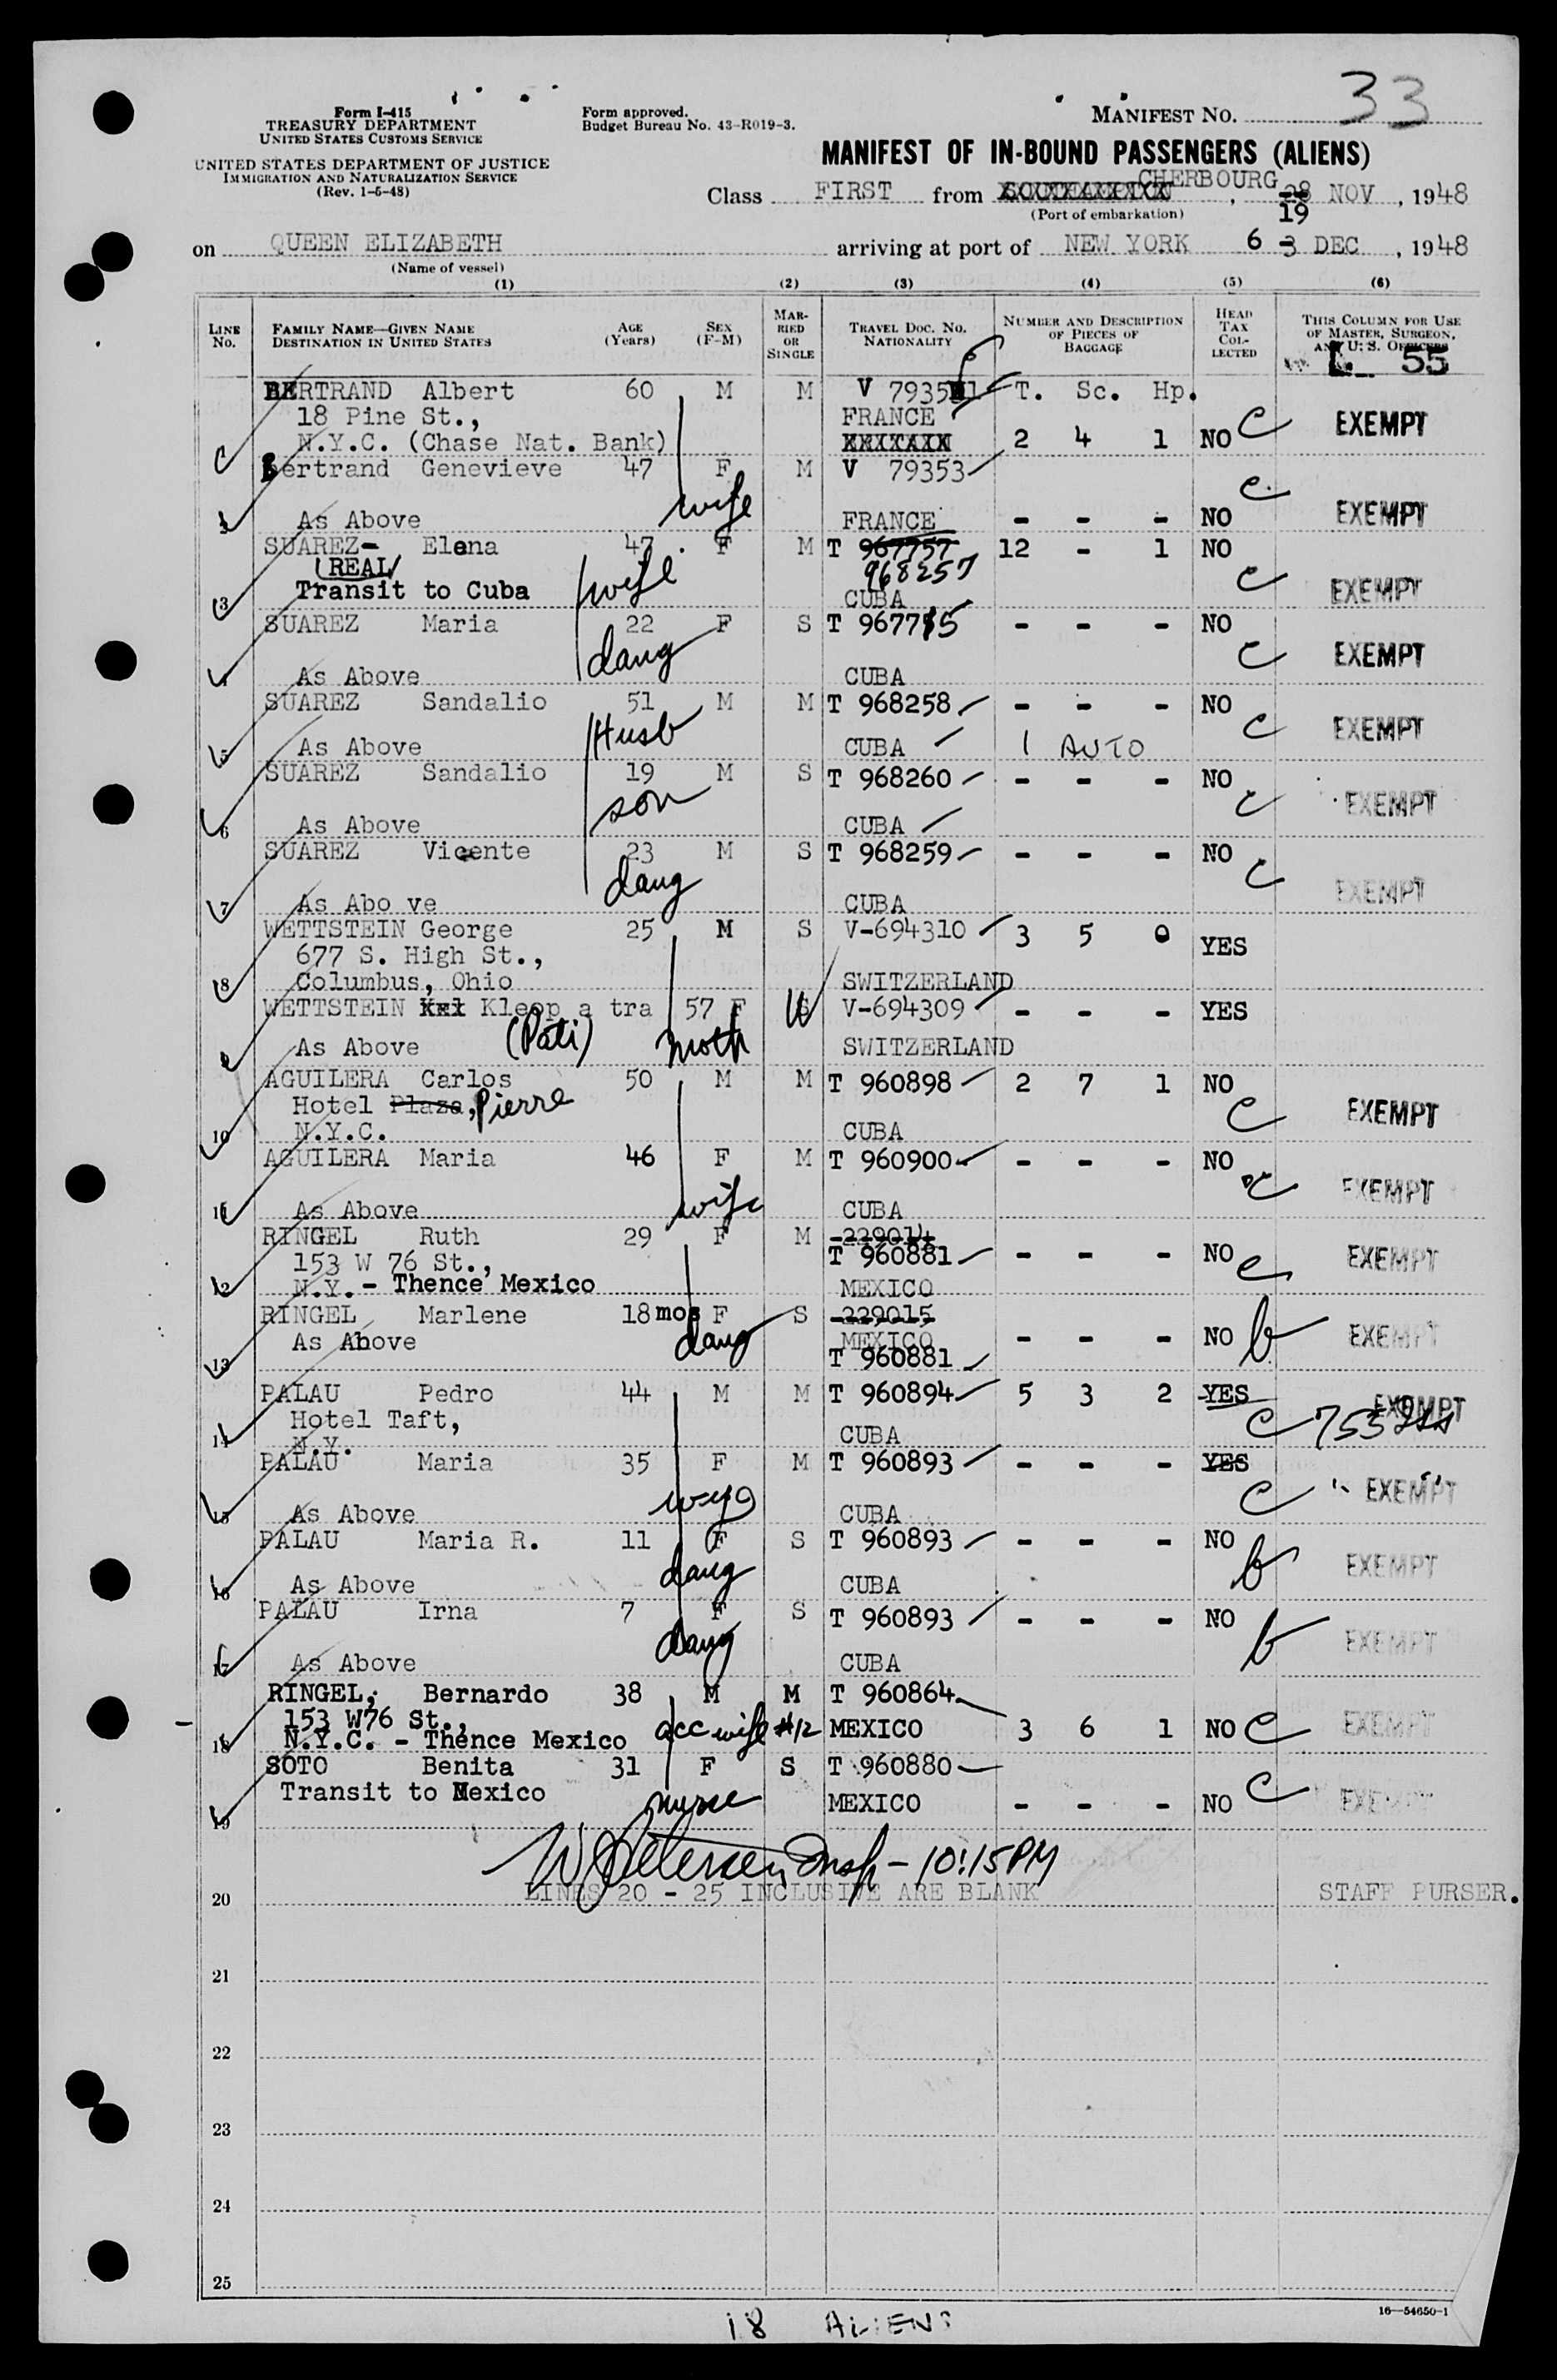 Form I-415
TREASURY DEPARTMENT
UNITED STATES CUSTOMS SERVICE
UNITED STATES DEPARTMENT OF JUSTICE
IMMIGRATION AND NATURALIZATION SERVICE
(Rev. 1-6-48)
Form approved.
Budget Bureau No. 43-R019-3.
MANIFEST NO. 33
MANIFEST OF IN-BOUND PASSENGERS (ALIENS)
Class FIRST from CHERBOURG, 28 19 NOV, 1948
(Port of embarkation)
on QUEEN ELIZABETH arriving at port of NEW YORK 6 3 DEC, 1948
(Name of vessel)
(1) (2) (3) (4) (5) (6)
LINE No. FAMILY NAME—GIVEN NAME DESTINATION IN UNITED STATES AGE (Years) SEX (F-M) MARRIED OR SINGLE TRAVEL DOC. NO. NATIONALITY NUMBER AND DESCRIPTION OF PIECES OF BAGGAGE HEAD TAX COLLECTED THIS COLUMN FOR USE OF MASTER, SURGEON, AND U. S. OFFICERS
L 55
BERTRAND Albert 60 M M V 7935 T. Sc. Hp.
18 Pine St., FRANCE
N.Y.C. (Chase Nat. Bank) 2 4 1 NO C EXEMPT
Bertrand Genevieve 47 F M V 79353
wife
As Above FRANCE - - - NO C EXEMPT
SUAREZ- Elena 47 F M T 967757 12 - 1 NO
(REAL) wife 968257
3 Transit to Cuba CUBA C EXEMPT
SUAREZ Maria 22 F S T 967715 - - - NO
daug
As Above CUBA C EXEMPT
SUAREZ Sandalio 51 M M T 968258 - - - NO
Husb
5 As Above CUBA 1 AUTO C EXEMPT
SUAREZ Sandalio 19 M S T 968260 - - - NO
son
6 As Above CUBA C EXEMPT
SUAREZ Vicente 23 M S T 968259 - - - NO
daug
7 As Abo ve CUBA C EXEMPT
WETTSTEIN George 25 M S V-694310 3 5 0 YES
677 S. High St.,
8 Columbus, Ohio SWITZERLAND
WETTSTEIN Kleop a tra 57 F W V-694309 - - - YES
(Pati) moth
As Above SWITZERLAND
AGUILERA Carlos 50 M M T 960898 2 7 1 NO
Hotel Plaza, Pierre C EXEMPT
10 N.Y.C. CUBA
AGUILERA Maria 46 F M T 960900 - - - NO
wife
11 As Above CUBA C EXEMPT
RINGEL Ruth 29 F M 229014
153 W 76 St., T 960881 - - - NO C EXEMPT
12 N.Y. - Thence Mexico MEXICO
RINGEL Marlene 18 mos F S 229015
As Above daug MEXICO - - - NO b EXEMPT
13 T 960881
PALAU Pedro 44 M M T 960894 5 3 2 YES EXEMPT
Hotel Taft, C
14 N.Y. CUBA
PALAU Maria 35 F M T 960893 - - - YES
15 As Above CUBA C EXEMPT
PALAU Maria R. 11 F S T 960893 - - - NO
daug
16 As Above CUBA b EXEMPT
PALAU Irna 7 F S T 960893 - - - NO
daug
17 As Above CUBA b EXEMPT
RINGEL, Bernardo 38 M M T 960864
153 W76 St., acc wife #12 MEXICO 3 6 1 NO C EXEMPT
18 N.Y.C. - Thence Mexico
SOTO Benita 31 F S T 960880
Transit to Mexico nurse MEXICO - - - NO C EXEMPT
19
Insp - 10:15 PM
20 LINES 20 - 25 INCLUSIVE ARE BLANK STAFF PURSER.
21
22
23
24
25
16—54650-1
18 ALIENS